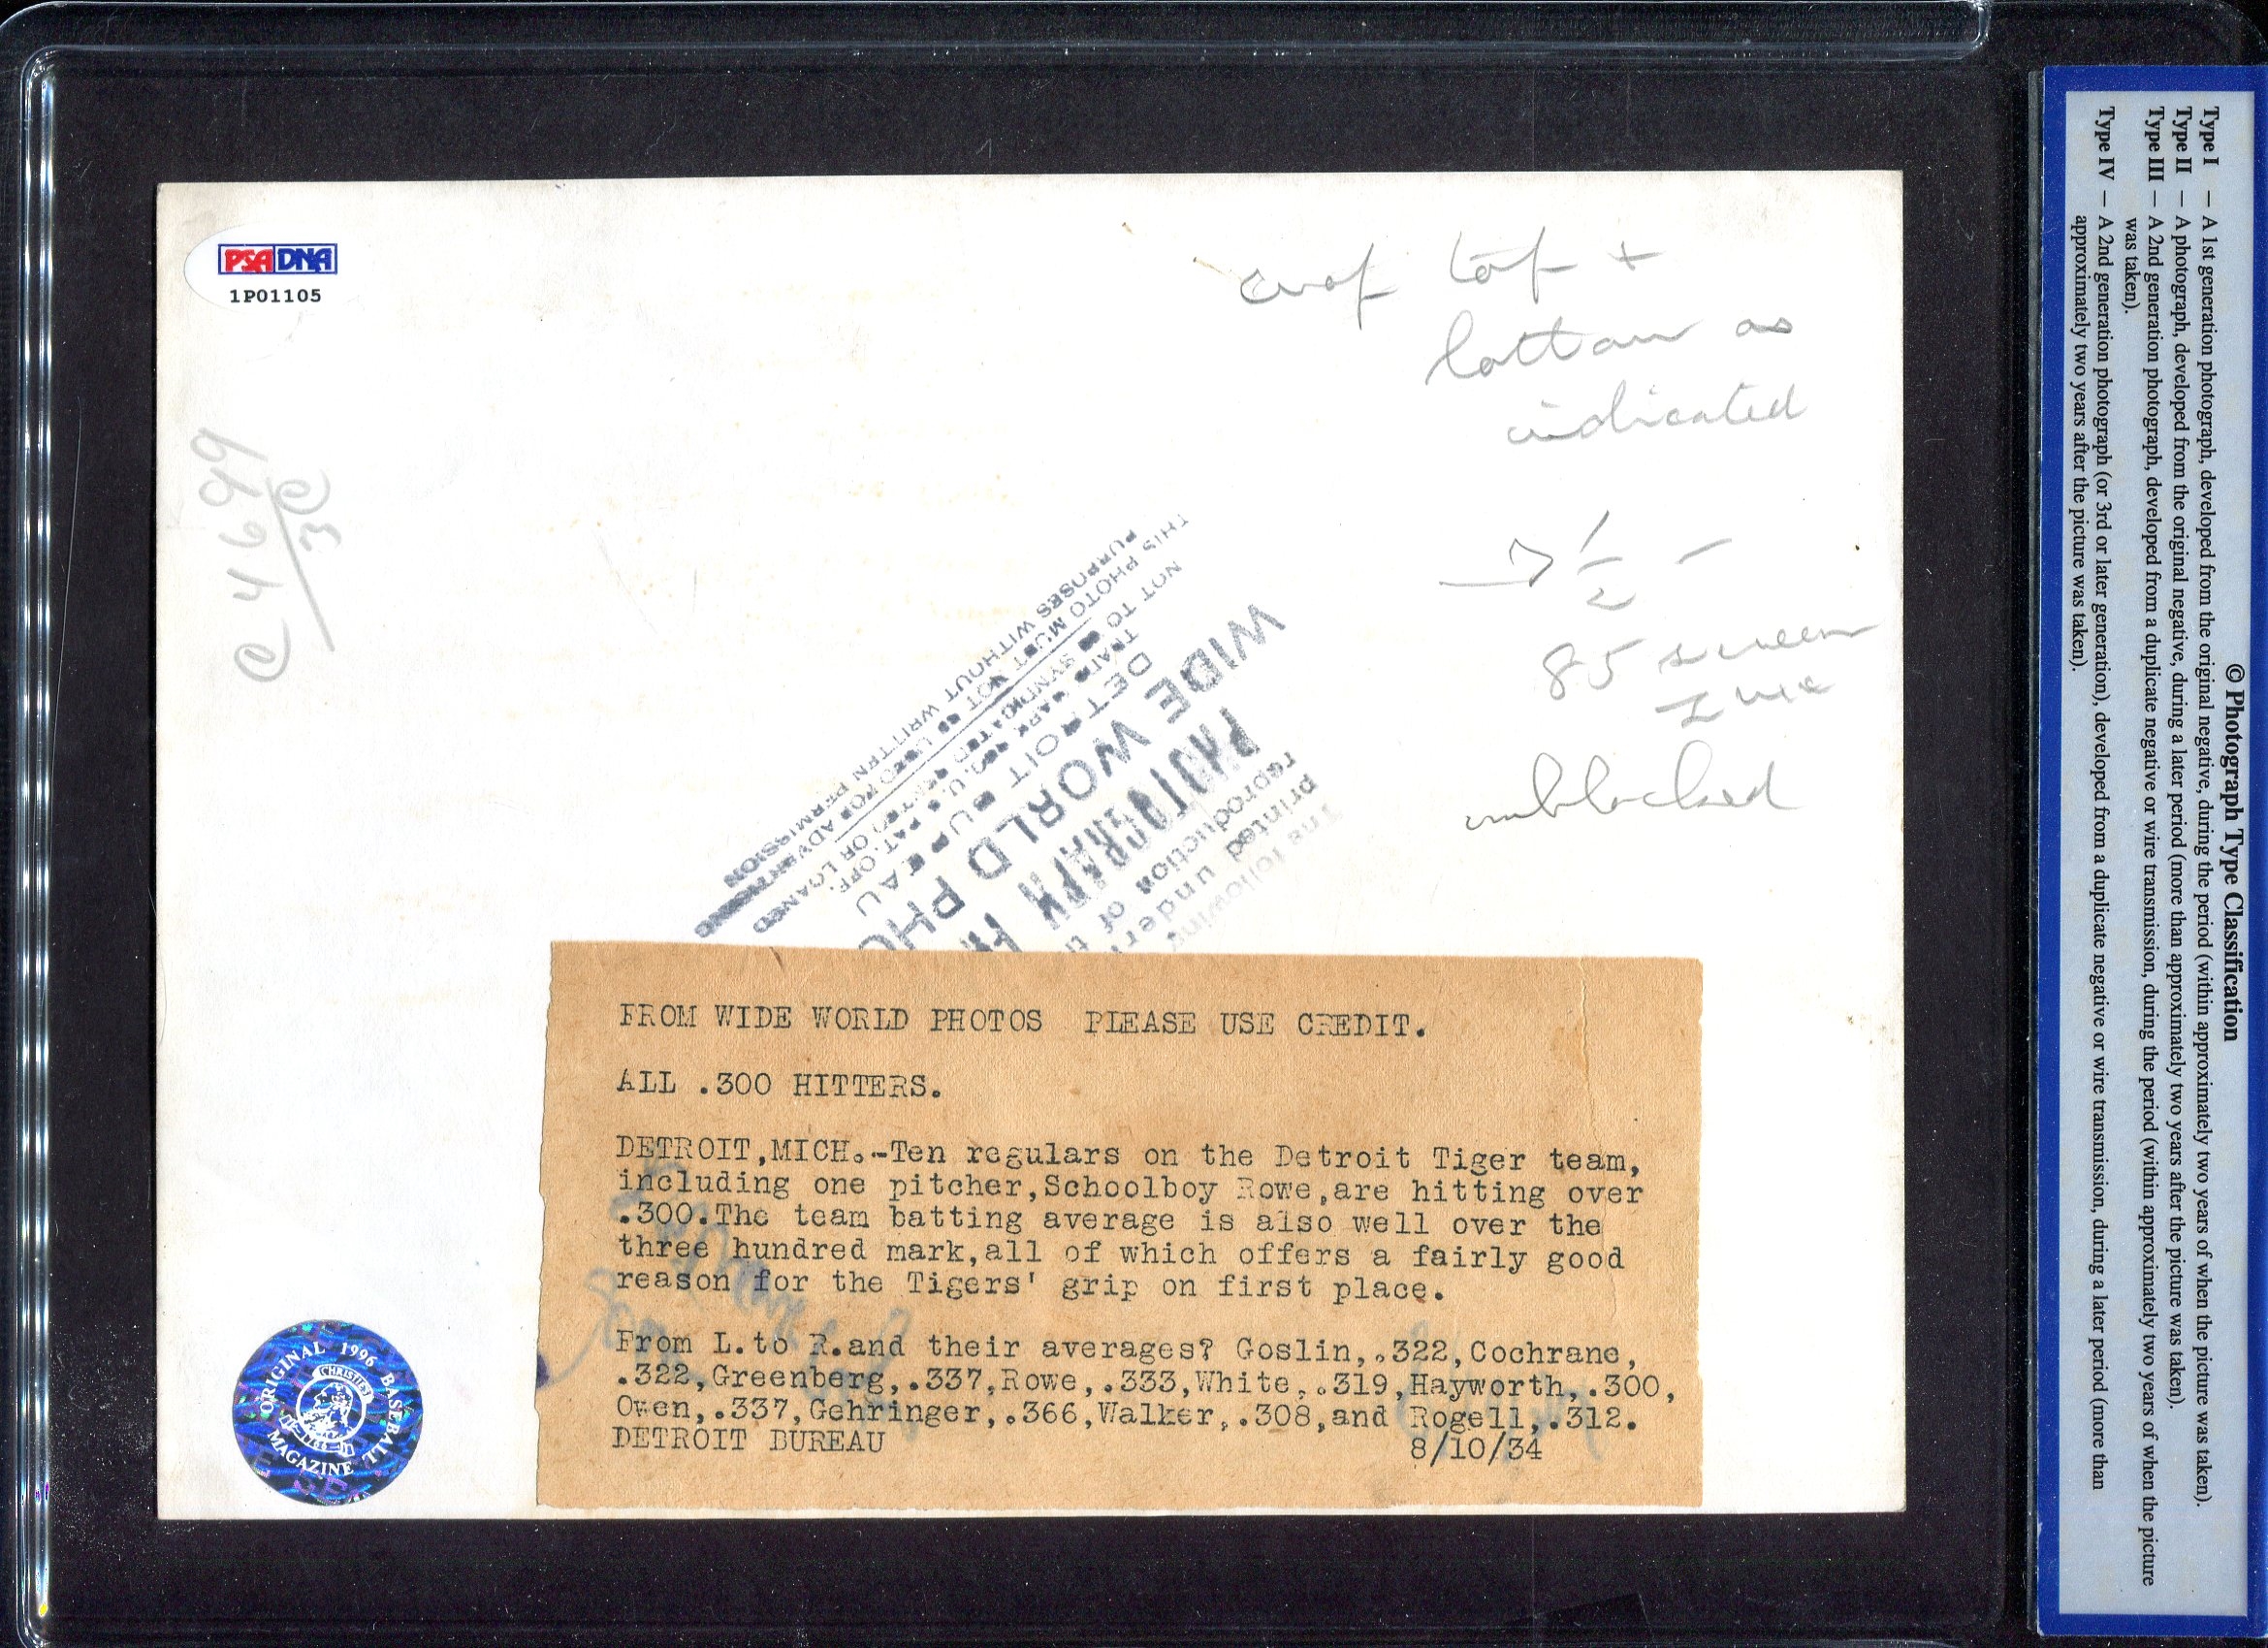 PSA DNA
1P01105
crop top +
bottom as
indicated
1/2 -
85 screen
zinc
unblocked
THIS PHOTO MUST NOT BE USED FOR ADVERTISING
PURPOSES WITHOUT WRITTEN PERMISSION
NOT TO BE SYNDICATED, RENTED OR LOANED
TRADE MARK REG. U.S. PAT. OFF.
DETROIT BUREAU
WIDE WORLD PHO
PHOTOGRAPH
reproduction of
printed under
The following
FROM WIDE WORLD PHOTOS PLEASE USE CREDIT.
ALL .300 HITTERS.
DETROIT,MICH.-Ten regulars on the Detroit Tiger team,
including one pitcher,Schoolboy Rowe,are hitting over
.300.The team batting average is also well over the
three hundred mark,all of which offers a fairly good
reason for the Tigers' grip on first place.
From L.to R.and their averages? Goslin,.322,Cochrane,
.322,Greenberg,.337,Rowe,.333,White,.319,Hayworth,.300,
Owen,.337,Gehringer,.366,Walker,.308,and Rogell,.312.
DETROIT BUREAU 8/10/34
ORIGINAL 1996 BASEBALL MAGAZINE
CHRISTIE'S
1766
© Photograph Type Classification
Type I — A 1st generation photograph, developed from the original negative, during the period (within approximately two years of when the picture was taken).
Type II — A photograph, developed from the original negative, during a later period (more than approximately two years after the picture was taken).
Type III — A 2nd generation photograph, developed from a duplicate negative or wire transmission, during the period (within approximately two years of when the picture
was taken).
Type IV — A 2nd generation photograph (or 3rd or later generation), developed from a duplicate negative or wire transmission, during a later period (more than
approximately two years after the picture was taken).